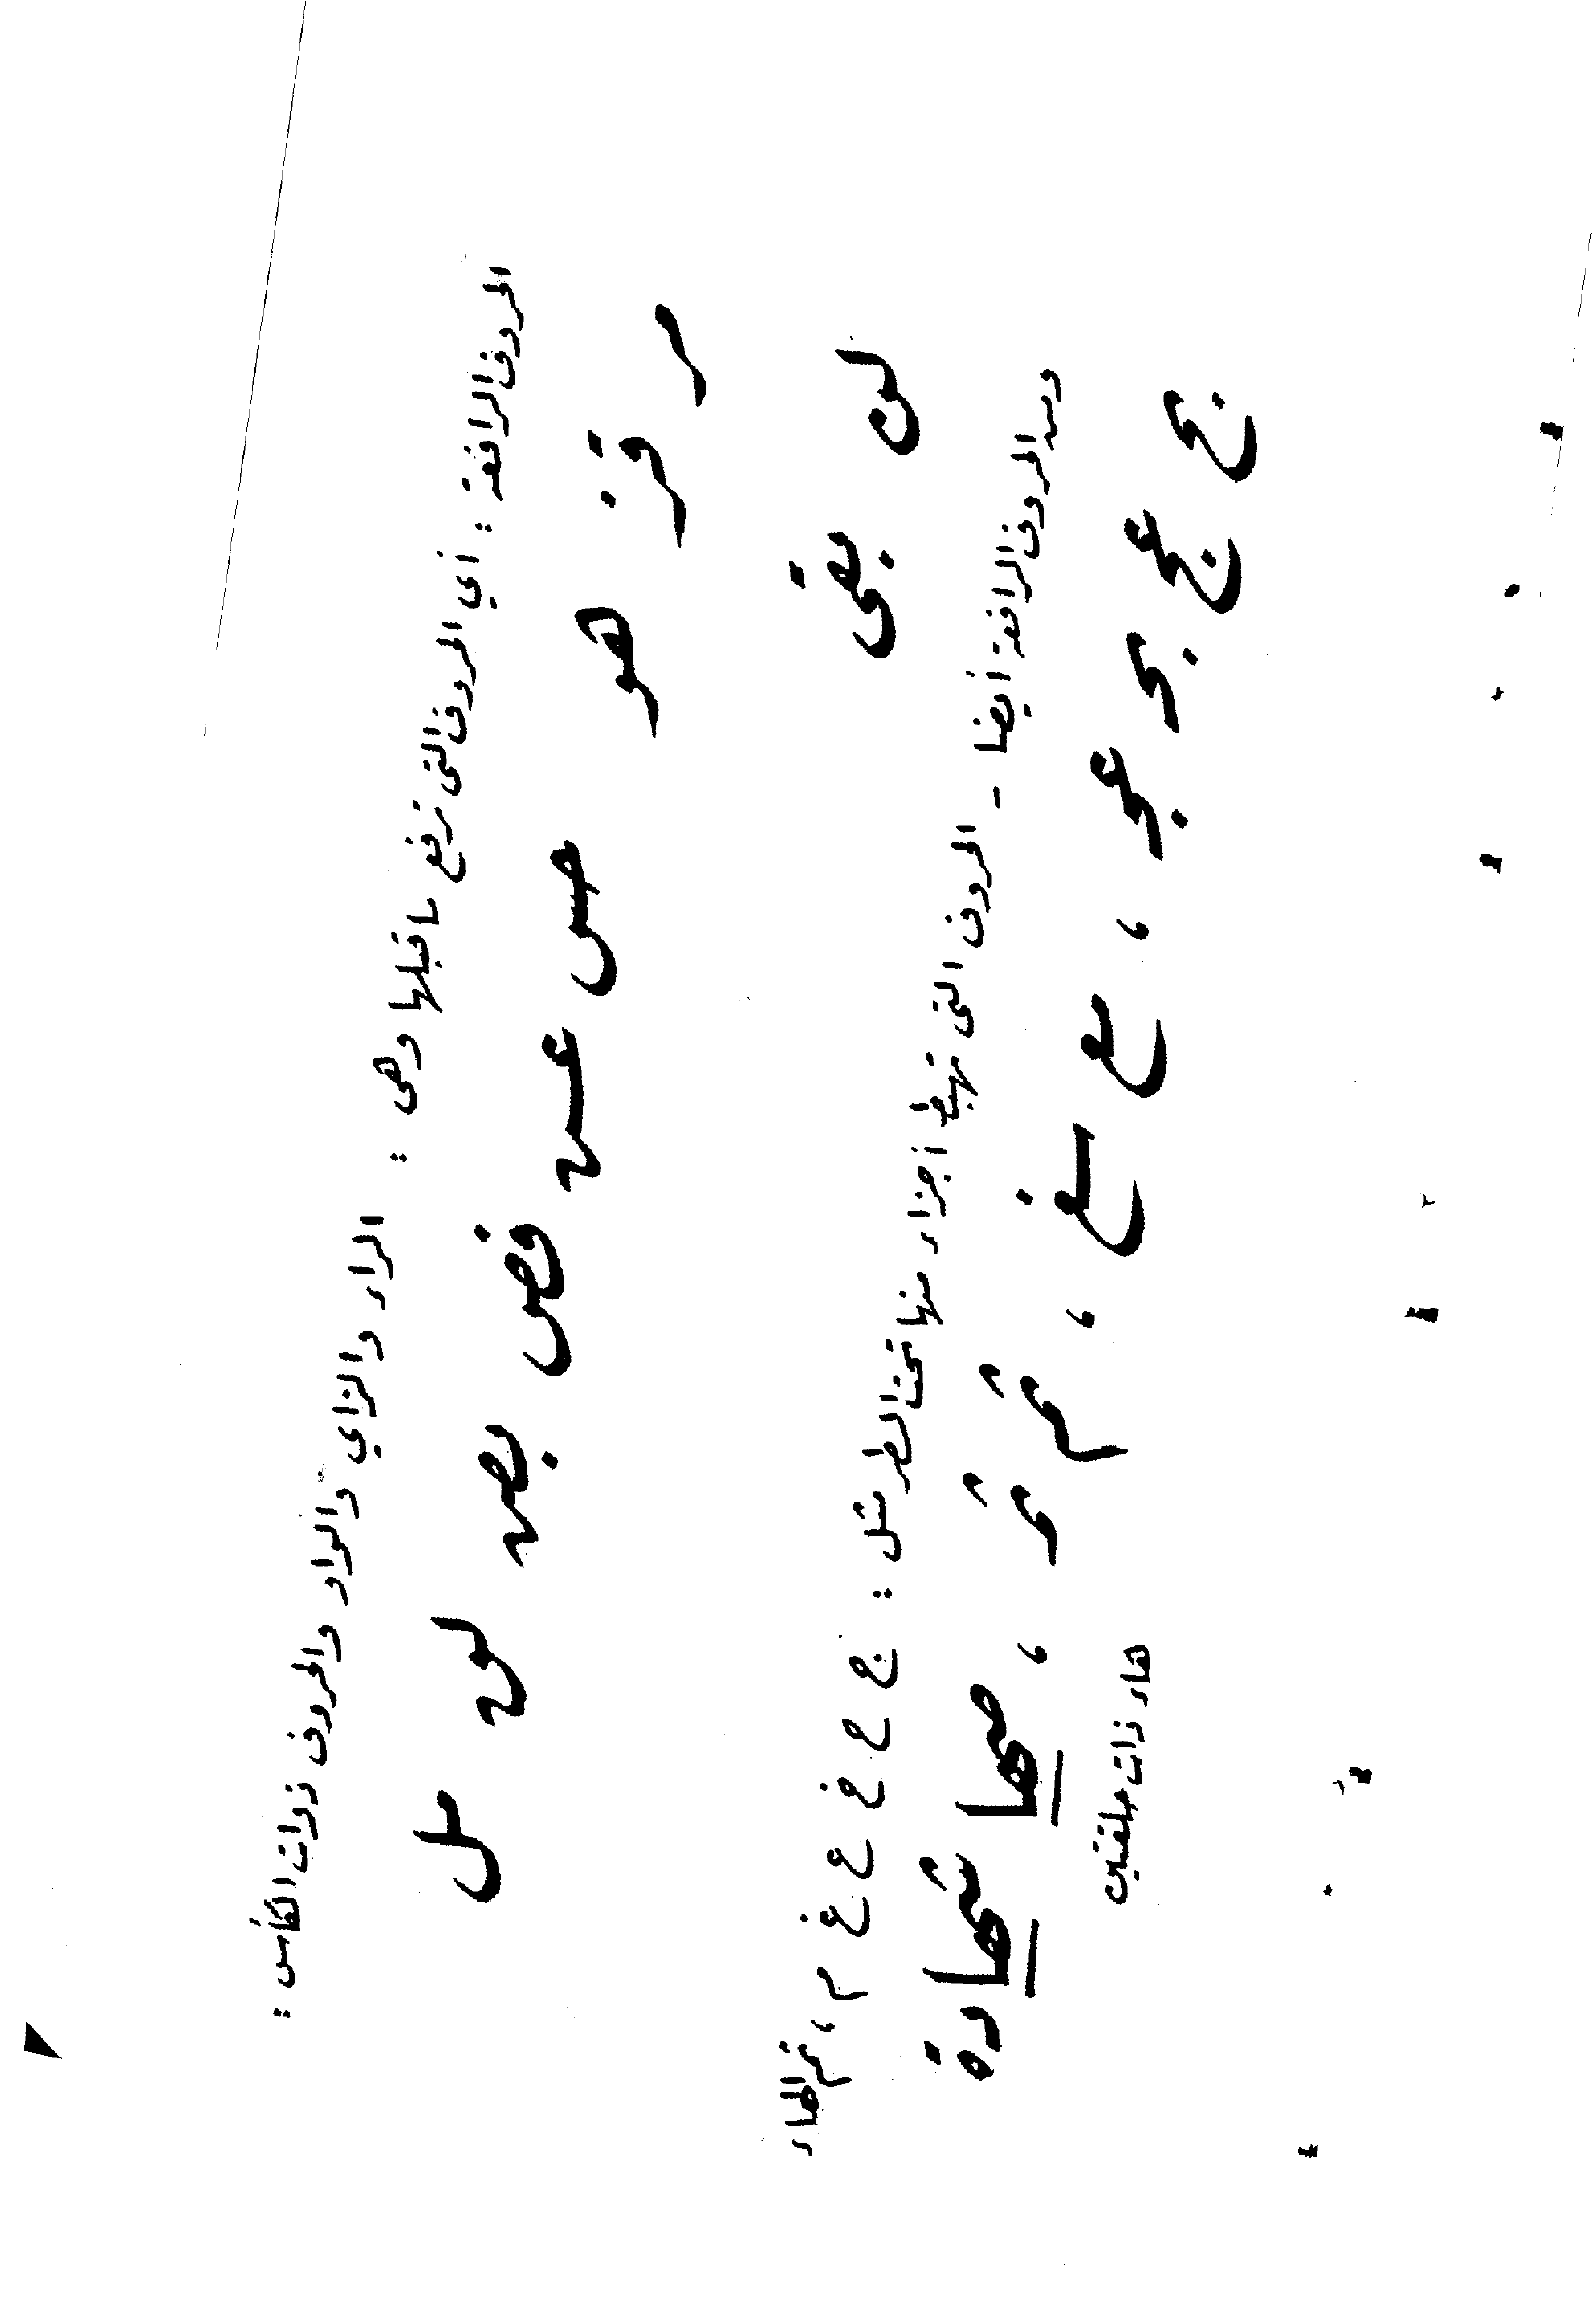 الحروف الرافعة : أي الحروف التى ترفع ما قبلها وهى : الراء والزاي والواو والحروف ذوات الكأس :
ر قز هو حس عس فض بص لن سل
لن بقى
ومن الحروف الرافعة أيضا - الحروف التى تهبط أجزاء منها تحت السطر مثل : ج ح خ ع غ م ، ثم الهاء
بج عج بجـ عجـ ، سع سغ ، ثم ثمـ ، صحها شهادة
هاء ذات حلقتين